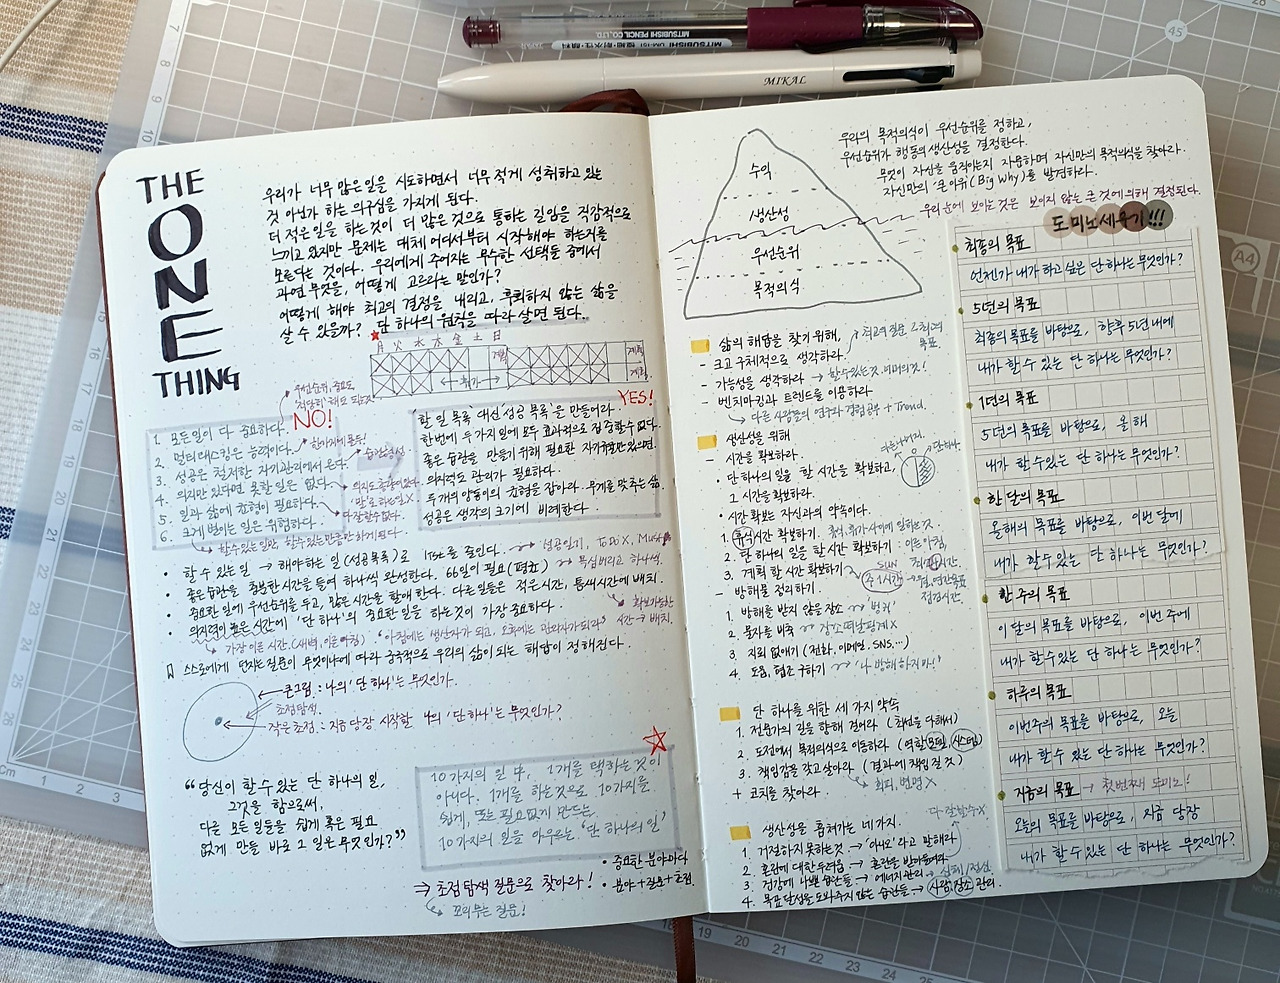 MITSUBISHI PENCIL CO., LTD.
MIKAL
THE
ONE
THING
우리가 너무 많은 일을 시도하면서 너무 적게 성취하고 있는
것 아닌가 하는 의구심을 가지게 된다.
더 적은 일을 하는 것이 더 많은 것으로 통하는 길임을 직감적으로
느끼고 있지만 문제는 대체 어디서부터 시작해야 하는지를
모른다는 것이다. 우리에게 주어지는 무수한 선택들 중에서
과연 무엇을, 어떻게 고르라는 말인가?
어떻게 해야 최고의 결정을 내리고, 후회하지 않는 삶을
살 수 있을까? 단 하나의 원칙을 따라 살면 된다.
月 火 水 木 金 土 日
계획
계획
계획
휴가
우선순위, 중요도
NO!
1. 모든일이 다 중요하다.
2. 멀티태스킹은 능력이다.
3. 성공은 철저한 자기관리에서 온다.
4. 의지만 있다면 못할 일은 없다.
5. 일과 삶에 균형이 필요하다.
6. 크게 벌이는 일은 위험하다.
한가지에 몰두!
습관형성
다 잘할 수 없다.
YES!
할 일 목록 대신 '성공 목록'을 만들어라.
한번에 두가지 일에 모두 효과적으로 집중할 수 없다.
좋은 습관을 만들기 위해 필요한 자기규율만 있으면.
의지력도 관리가 필요하다.
두 개의 양동이의 균형을 잡아라. 무게를 맞추는 삶
성공은 생각의 크기에 비례한다.
• 할 수 있는 일 → 해야하는 일 (성공목록)로 list를 줄인다. → 성공일지, ToDo X, Must
• 좋은 습관을 충분한 시간을 들여 하나씩 완성한다. 66일이 필요(평균) → 욕심버리고 하나씩.
• 중요한 일에 우선순위를 두고, 많은 시간을 할애한다. 다른 일들은 적은시간, 틈새시간에 배치.
• 의지력이 높은 시간에 '단 하나'의 중요한 일을 하는것이 가장 중요하다.
가장 이른 시간. (새벽, 이른아침) "아침에는 생산자가 되고, 오후에는 관리자가 되라"
확보가능한
시간 → 배치.
스스로에게 던지는 질문이 무엇이냐에 따라 궁극적으로 우리의 삶이 되는 해답이 정해진다.
큰그림 : 나의 '단 하나'는 무엇인가.
초점탐색.
작은 초점 : 지금 당장 시작할 나의 '단 하나'는 무엇인가?
"당신이 할 수 있는 단 하나의 일,
그것을 함으로써,
다른 모든 일들을 쉽게 혹은 필요
없게 만들 바로 그 일은 무엇인가?"
10가지의 일 中, 1개를 택하는 것이
아니다. 1개를 하는것으로, 10가지를
쉽게, 또는 필요없게 만드는.
10가지의 일을 아우르는 '단 하나의 일'
⇒ 초점탐색 질문으로 찾아라!
꼬리무는 질문!
• 중요한 분야마다
• 분야 + 질문 + 초점.
수익
생산성
우선순위
목적의식
우리의 목적의식이 우선순위를 정하고,
우선순위가 행동의 생산성을 결정한다.
무엇이 자신을 움직이는지 자문하며 자신만의 목적의식을 찾아라.
자신만의 '큰 이유(Big Why)'를 발견하라.
우리 눈에 보이는 것은 보이지 않는 큰 것에 의해 결정된다.
삶의 해답을 찾기 위해,
- 크고 구체적으로 생각하라.
최고의 질문, 최고의
목표.
- 가능성을 생각하라 → 할 수 있는 것 너머의 것!
- 벤치마킹과 트렌드를 이용하라
다른 사람들의 연구와 경험공부 + Trend.
생산성을 위해
- 시간을 확보하라.
• 단 하나의 일을 할 시간을 확보하고,
그 시간을 확보하라.
• 시간 확보는 자신과의 약속이다.
1. 휴식시간 확보하기.
2. 단 하나의 일을 할 시간 확보하기 : 이른 아침,
3. 계획 할 시간 확보하기
SUN
주 1시간
점검시간.
- 방해물 정리하기
1. 방해를 받지 않을 장소 → 벙커
2. 물자를 비축 → 장소 떠날 핑계 X
3. 지뢰 없애기 (전화, 이메일, SNS,...)
4. 도움, 협조 구하기 → '나 방해하지마!'
단 하나를 위한 세 가지 약속
1. 전문가의 길을 향해 걸어라 (최선을 다해서)
2. 도전에서 목적의식으로 이동하라 (역할모델, 시스템)
3. 책임감을 갖고 살아라 (결과에 책임질 것)
회피, 변명 X
+ 코치를 찾아라.
생산성을 훔쳐가는 네가지.
다 잘할수 X
1. 거절하지 못하는 것 → '아니오' 라고 말해라
2. 혼란에 대한 두려움 → 혼란을 받아들여라
3. 건강에 나쁜 습관들 → 에너지 관리
4. 목표달성을 도와주지 않는 습관들 → 사람, 장소 관리.
도미노 세우기!!!
최종의 목표
언젠가 내가 하고 싶은 단 하나는 무엇인가?
5년의 목표
최종의 목표를 바탕으로, 향후 5년내에
내가 할 수 있는 단 하나는 무엇인가?
1년의 목표
5년의 목표를 바탕으로, 올해
내가 할 수 있는 단 하나는 무엇인가?
한 달의 목표
올해의 목표를 바탕으로, 이번 달에
내가 할 수 있는 단 하나는 무엇인가?
한 주의 목표
이 달의 목표를 바탕으로, 이번 주에
내가 할 수 있는 단 하나는 무엇인가?
하루의 목표
이번주의 목표를 바탕으로, 오늘
내가 할 수 있는 단 하나는 무엇인가?
지금의 목표 → 첫번째 도미노!
오늘의 목표를 바탕으로, 지금 당장
내가 할 수 있는 단 하나는 무엇인가?
A4
45